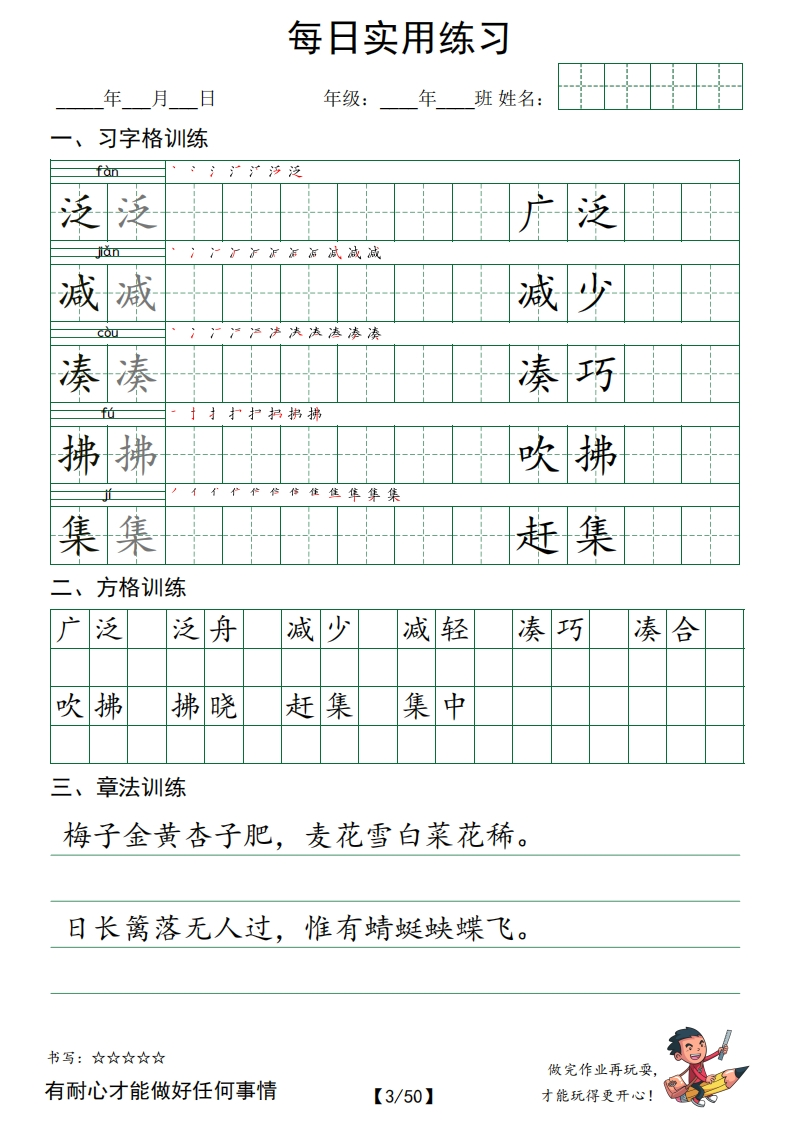 每日实用练习
_____年___月___日 年级：____年____班 姓名：
一、习字格训练
fàn
泛 泛 广 泛
jiǎn
减 减 减 少
còu
凑 凑 凑 巧
fú
拂 拂 吹 拂
jí
集 集 赶 集
二、方格训练
广泛 泛舟 减少 减轻 凑巧 凑合
吹拂 拂晓 赶集 集中
三、章法训练
梅子金黄杏子肥，麦花雪白菜花稀。
日长篱落无人过，惟有蜻蜓蛱蝶飞。
书写：☆☆☆☆☆
有耐心才能做好任何事情
【3/50】
做完作业再玩耍，
才能玩得更开心！